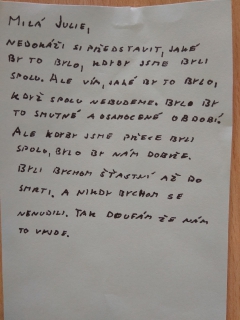 MILÁ JULIE,
NEDOKÁŽI SI PŘEDSTAVIT, JAKÉ
BY TO BYLO, KDYBY JSME BYLI
SPOLU. ALE VÍM, JAKÉ BY TO BYLO,
KDYŽ SPOLU NEBUDEME. BYLO BY
TO SMUTNÉ A OSAMOCENÉ OBDOBÍ.
ALE KDYBY JSME PŘECE BYLI
SPOLU, BYLO BY NÁM DOBŘE.
BYLI BYCHOM ŠŤASTNÍ AŽ DO
SMRTI. A NIKDY BYCHOM SE
NENUDILI. TAK DOUFÁM ŽE NÁM
TO VYJDE.